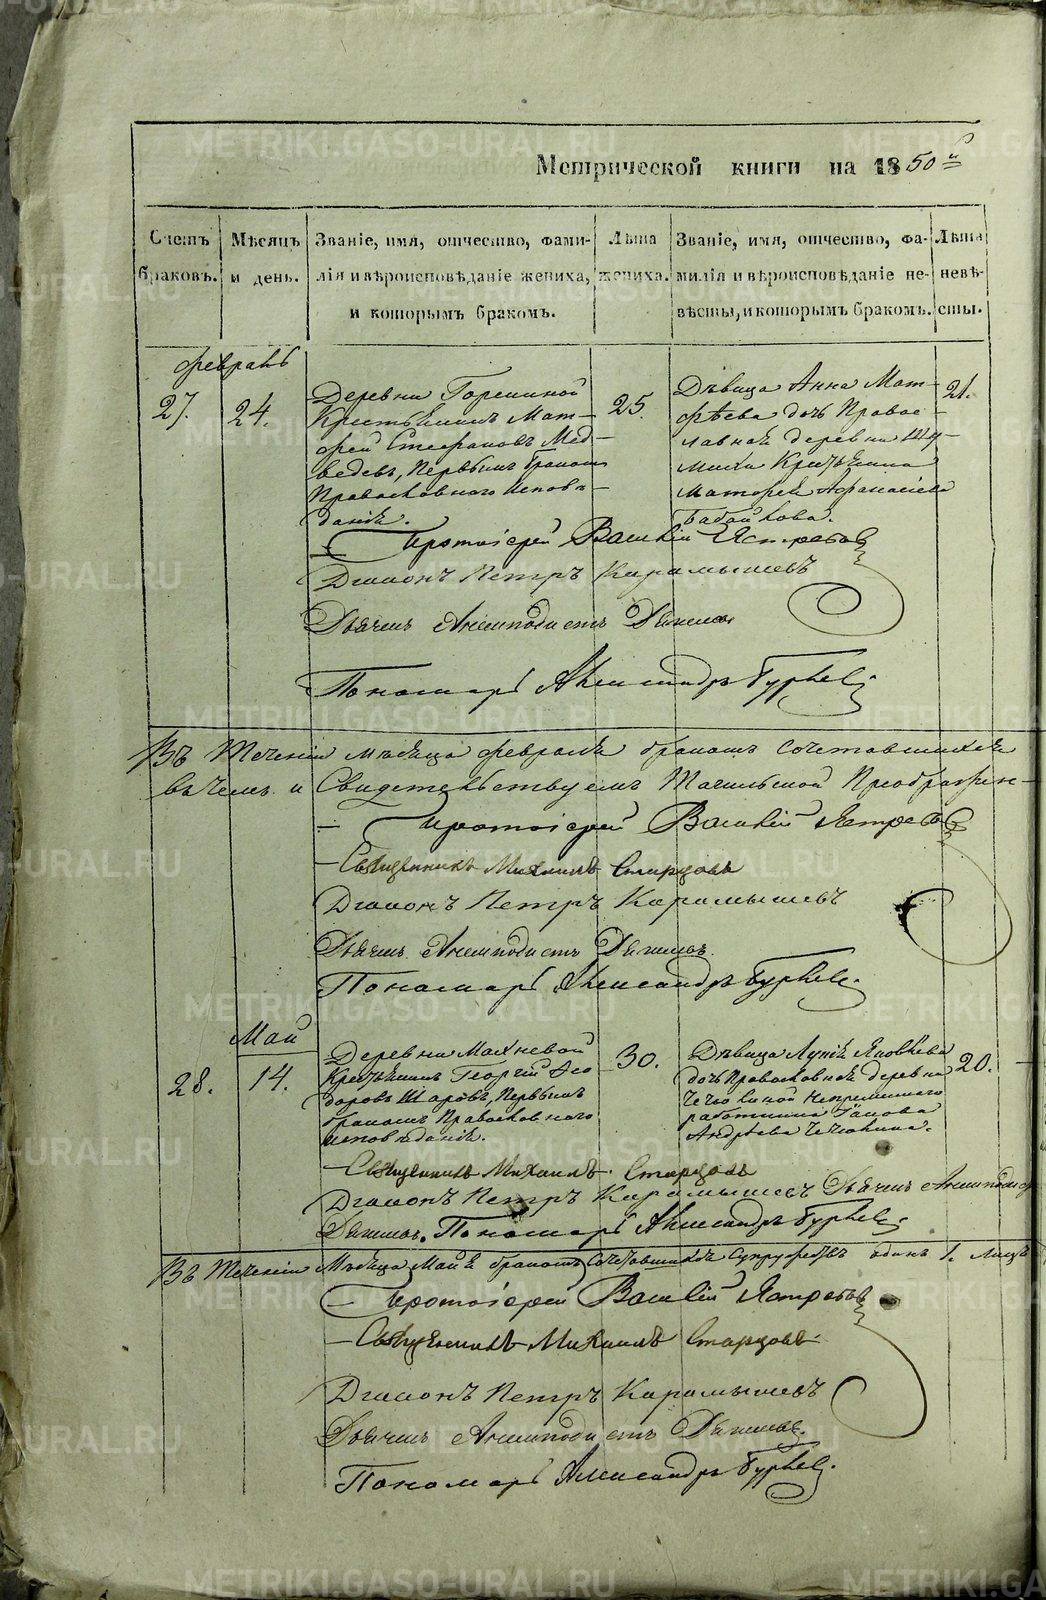 Метрической книги на 1850й
Счетъ браковъ.
Мѣсяцъ и день.
Званіе, имя, отчество, фами-
лія и вѣроисповѣданіе жениха,
и которымъ бракомъ.
Лѣта жениха.
Званіе, имя, отчество, фа-
милія и вѣроисповѣданіе не-
вѣсты, и которымъ бракомъ.
Лѣта невѣ-
сты.
Февраль
27.
24.
Деревни
Крестьянинъ Мат-
фей Стефановъ Мед-
ведевъ, Первымъ бракомъ
Православного Испове-
данія.
25.
Дѣвица Анна Мат-
фѣева дочь Право-
славная деревни
Крестьянина
Матфея Афанасіева
21.
Протоіерей Василій Ястребов
Діаконъ Петръ Карамышевъ
Дьячекъ Анемподистъ
Пономарь Александръ Гурьев
Въ теченіи мѣсяца февраля бракомъ сочетавшихся
въ чемъ и Свидетельствуемъ Преображен-
Протоіерей Василій Ястребов
Священникъ Михаилъ Старцовъ
Діаконъ Петръ Карамышевъ
Дьячекъ Анемподистъ
Пономарь Александръ Гурьев.
Май
28.
14.
Деревни Махневой
Крестьянинъ Георгій Фео-
доровъ Шаровъ, Первымъ
бракомъ Православного
исповѣданія.
30.
Дѣвица Яковлева
дочь Православная деревни
работника
Андрѣева
20.
Священникъ Михаилъ Старцовъ
Діаконъ Петръ Карамышевъ Дьячекъ Анемподистъ
Пономарь Александръ Гурьев.
Въ теченіи Мѣсяца Маія бракомъ Сочетавшихся Супружествъ одинъ 1.
Протоіерей Василій Ястребов
Священникъ Михаилъ Старцовъ.
Діаконъ Петръ Карамышевъ
Дьячекъ Анемподистъ
Пономарь Александръ Гурьев.
METRIKI.GASO-URAL.RU